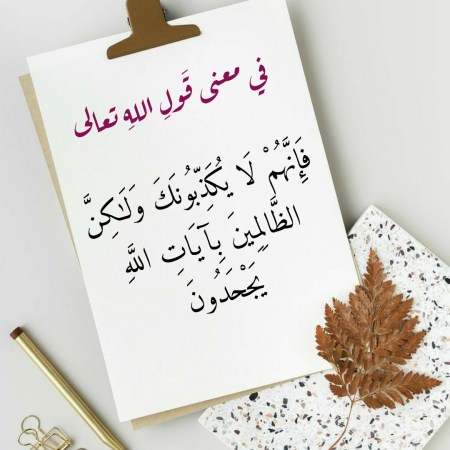 في معنى قَولِ اللهِ تعالى
فَإِنَّهُمْ لَا يُكَذِّبُونَكَ وَلَٰكِنَّ
الظَّالِمِينَ بِآيَاتِ اللَّهِ
يَجْحَدُونَ